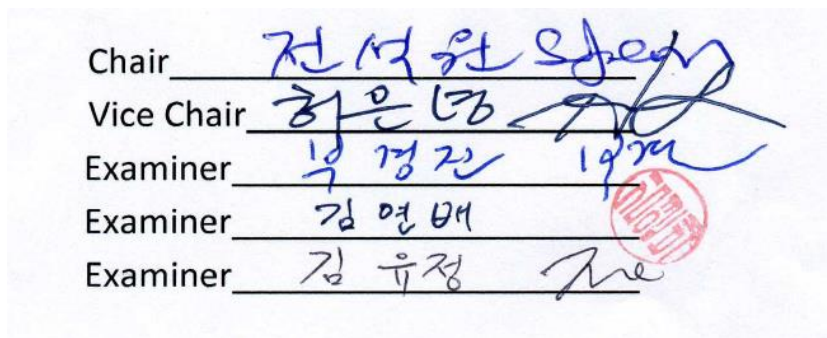 Chair 전석원
Vice Chair 허은녕
Examiner 부경진
Examiner 김연배
Examiner 김유정